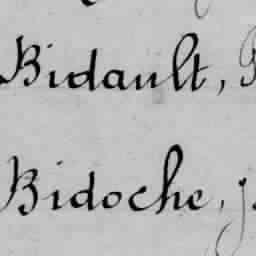 Bidault,
Bidoche, j